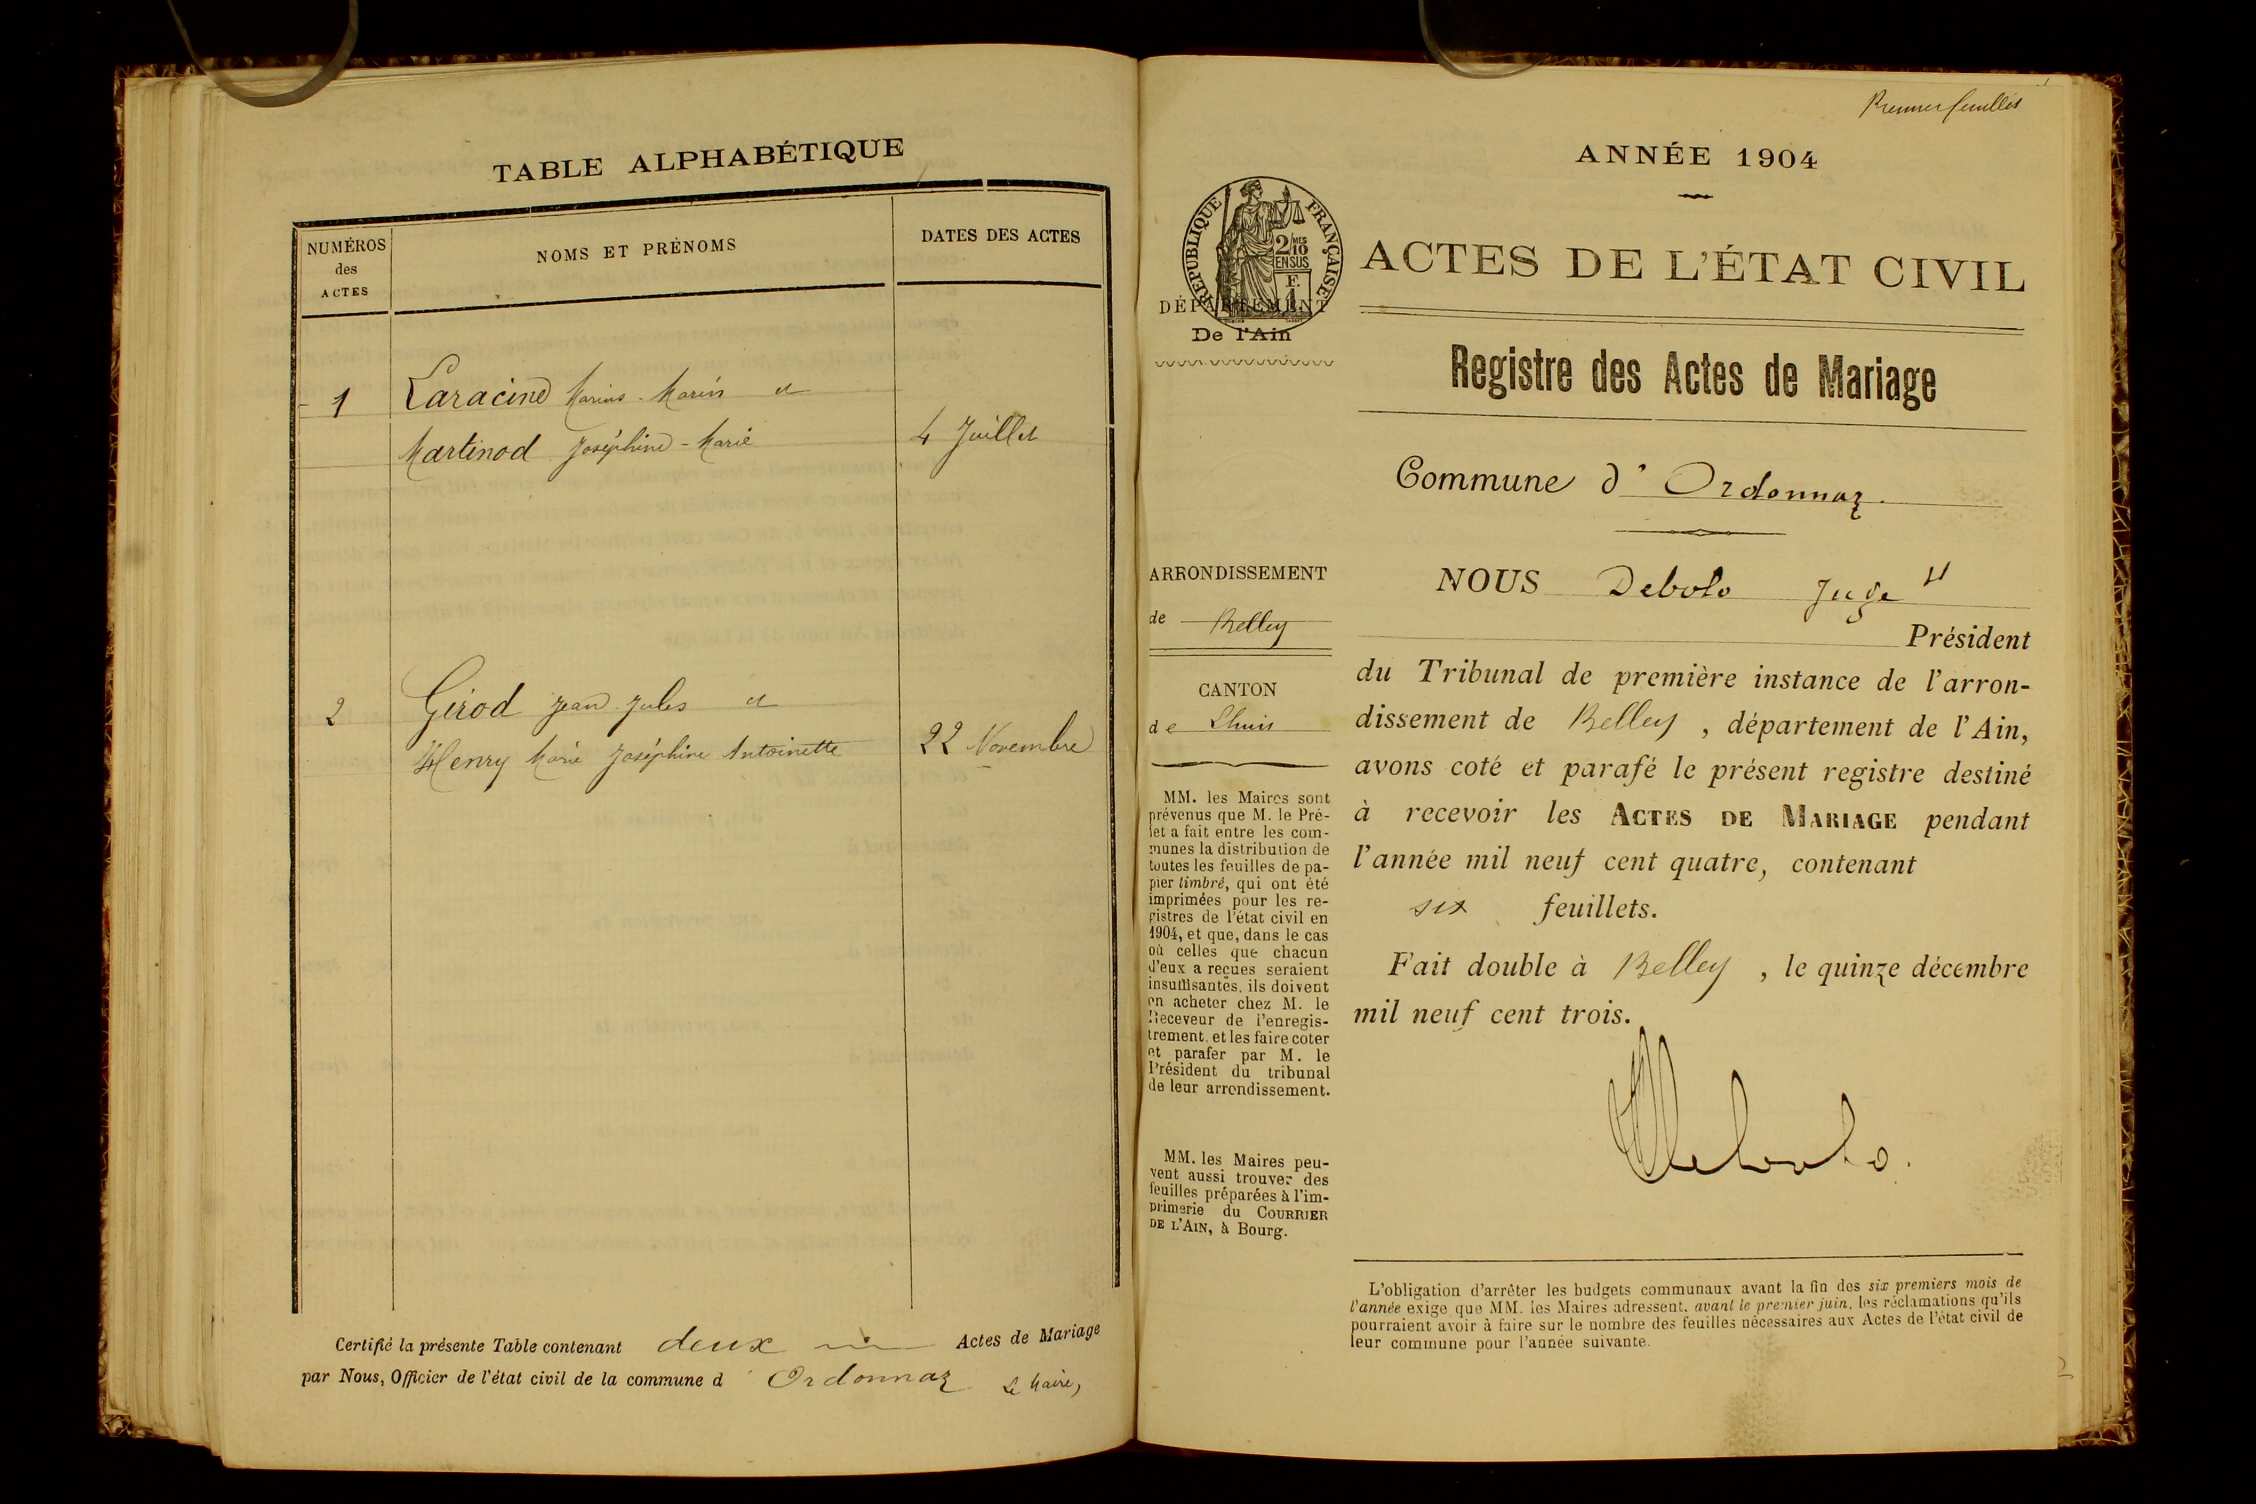 TABLE ALPHABÉTIQUE
NUMÉROS
des
ACTES
NOMS ET PRÉNOMS
DATES DES ACTES
1
Laracine Marius-Marin et
Martinod Joséphine-Marie
4 Juillet
2
Girod Jean Jules et
Henry Marie Joséphine Antoinette
22 Novembre
Certifié la présente Table contenant deux Actes de Mariage
par Nous, Officier de l'état civil de la commune d'Ordonnaz Le Maire,
Premier feuillet
ANNÉE 1904
RÉPUBLIQUE FRANÇAISE
2/10 MES
EN SUS
F.
1
DÉPARTEMENT
De l'Ain
ACTES DE L'ÉTAT CIVIL
Registre des Actes de Mariage
Commune d'Ordonnaz.
ARRONDISSEMENT
de Belley
CANTON
de Lhuis
MM. les Maires sont
prévenus que M. le Pré-
fet a fait entre les com-
munes la distribution de
toutes les feuilles de pa-
pier timbré, qui ont été
imprimées pour les re-
gistres de l'état civil en
1904, et que, dans le cas
où celles que chacun
d'eux a reçues seraient
insuffisantes, ils doivent
en acheter chez M. le
Receveur de l'enregis-
trement, et les faire coter
et parafer par M. le
Président du tribunal
de leur arrondissement.
MM. les Maires peu-
vent aussi trouver des
feuilles préparées à l'im-
primerie du COURRIER
DE L'AIN, à Bourg.
NOUS Debolo Juge
Président
du Tribunal de première instance de l'arron-
dissement de Belley, département de l'Ain,
avons coté et parafé le présent registre destiné
à recevoir les ACTES DE MARIAGE pendant
l'année mil neuf cent quatre, contenant
six feuillets.
Fait double à Belley, le quinze décembre
mil neuf cent trois.
Debolo.
L'obligation d'arrêter les budgets communaux avant la fin des six premiers mois de
l'année exige que MM. les Maires adressent, avant le premier juin, les réclamations qu'ils
pourraient avoir à faire sur le nombre des feuilles nécessaires aux Actes de l'état civil de
leur commune pour l'année suivante.